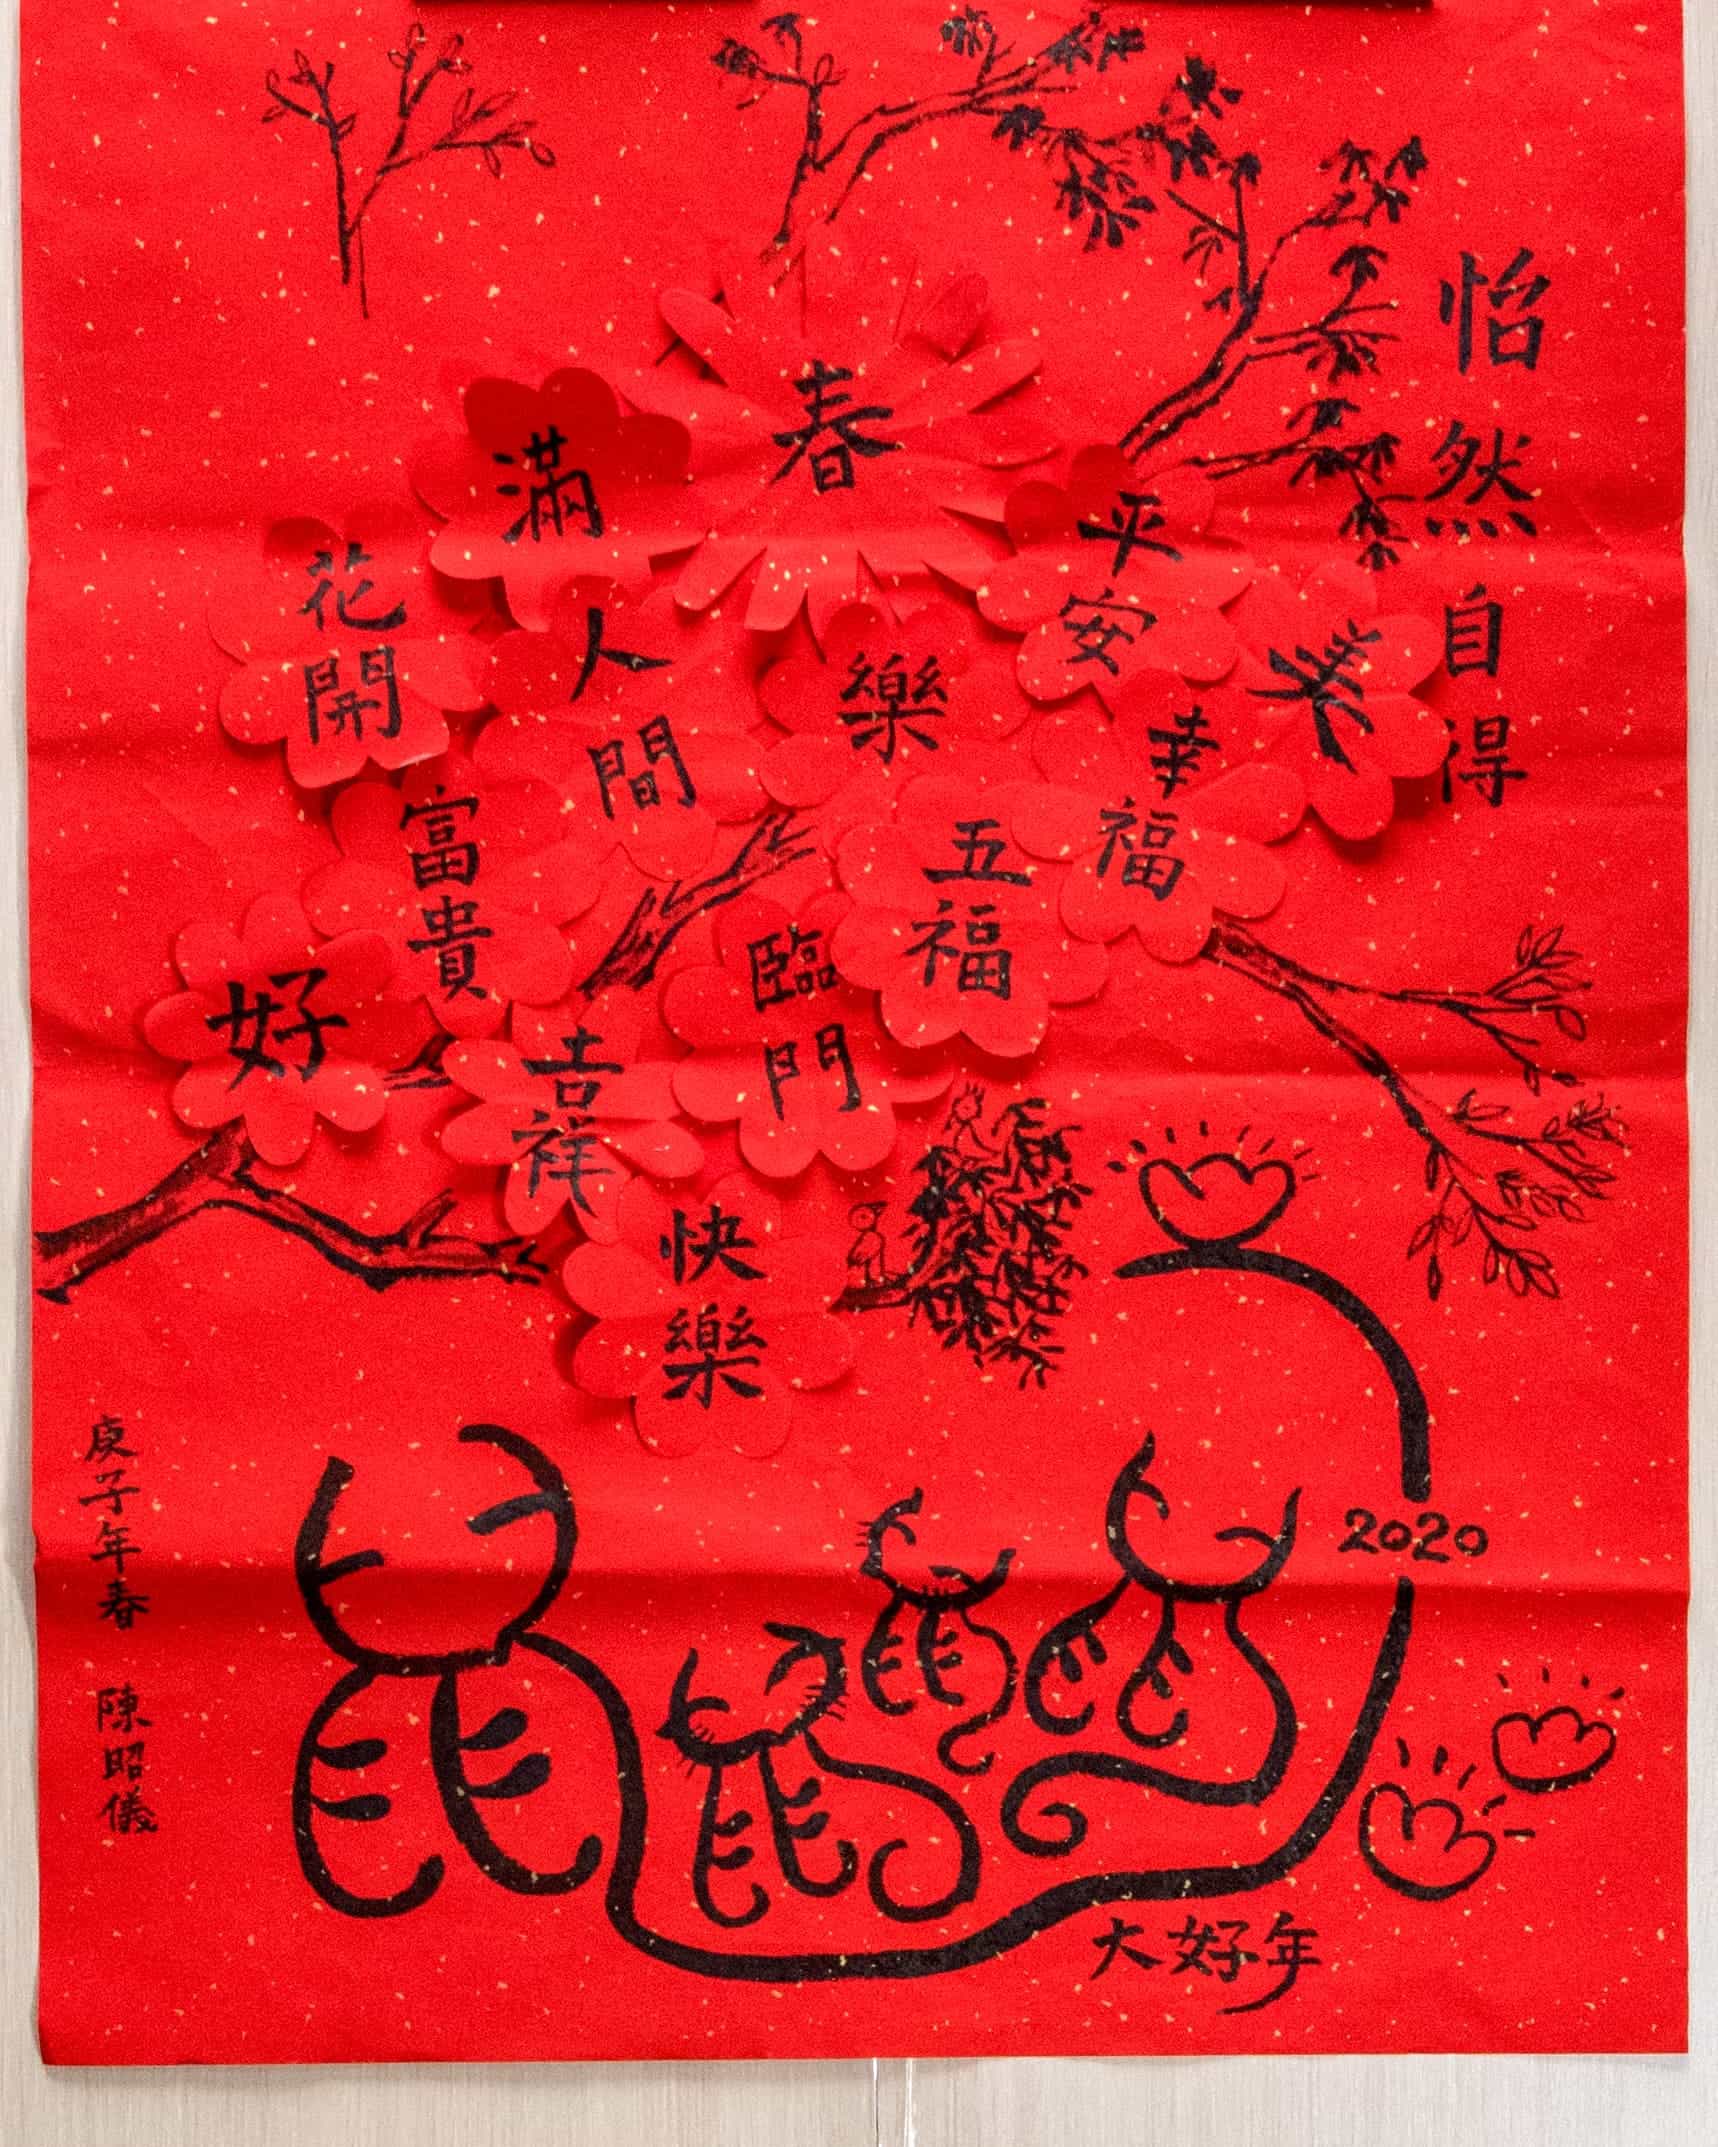 怡然自得
春
滿
人間
樂
平安
美
幸福
花開
富貴
五福
臨門
好
吉祥
快樂
2020
大好年
庚子年春 陳昭儀